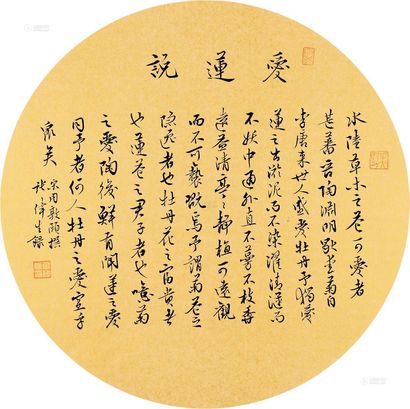 愛蓮說
水陸草木之花可愛者
甚蕃晉陶淵明獨愛菊自
李唐來世人盛愛牡丹予獨愛
蓮之出淤泥而不染濯清漣而
不妖中通外直不蔓不枝香
遠益清亭亭靜植可遠觀
而不可褻翫焉予謂菊花之
隱逸者也牡丹花之富貴者
也蓮花之君子者也噫菊
之愛陶後鮮有聞蓮之愛
同予者何人牡丹之愛宜乎
眾矣
宋周敦頤撰